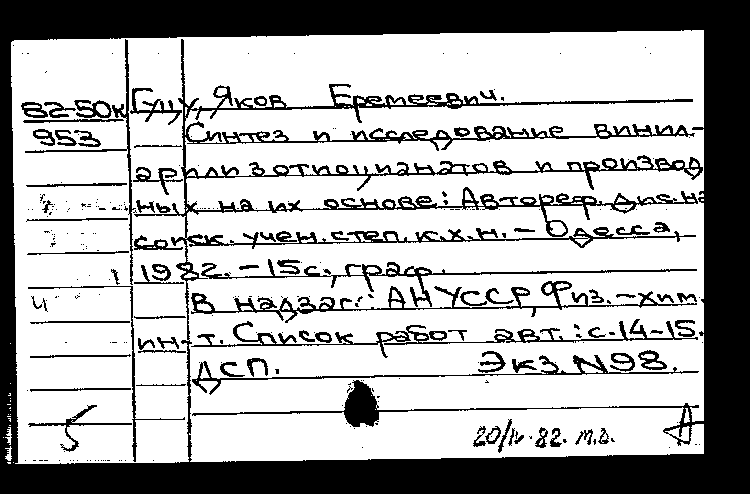 82-50к Гуцу, Яков Еремеевич.
953 Синтез и исследование винил-
арилизотиоцианатов и производ
ных на их основе: Автореф. дис. на
соиск. учен. степ. к.х.н. – Одесса,
1982. – 15с., граф.
В надзаг.: АН УССР, Физ.-хим.
ин-т. Список работ авт.: с.14-15.
ДСП. Экз. N98.
5 20/IV-82. т.з. А